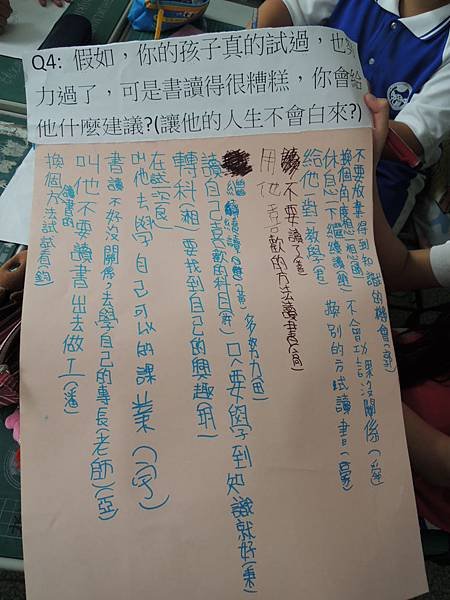 Q4: 假如，你的孩子真的試過，也努
力過了，可是書讀得很糟糕，你會給
他什麼建議?(讓他的人生不會白來?)
不要放棄得到知識的機會
換個角度想想 不會功課沒關係
休息一下繼續讀 換別的方式讀書
給他對教學
不要讀了
用他喜歡的方法讀書
繼續讀 多努力
讀自己喜歡的科目 只要學到知識就好
轉科 要找到自己的興趣
在鼓勵
叫他去學自己可以的課業
書讀不好沒關係，去學自己的專長(老師)
叫他不要讀書出去做工
換個讀書的方法試試看